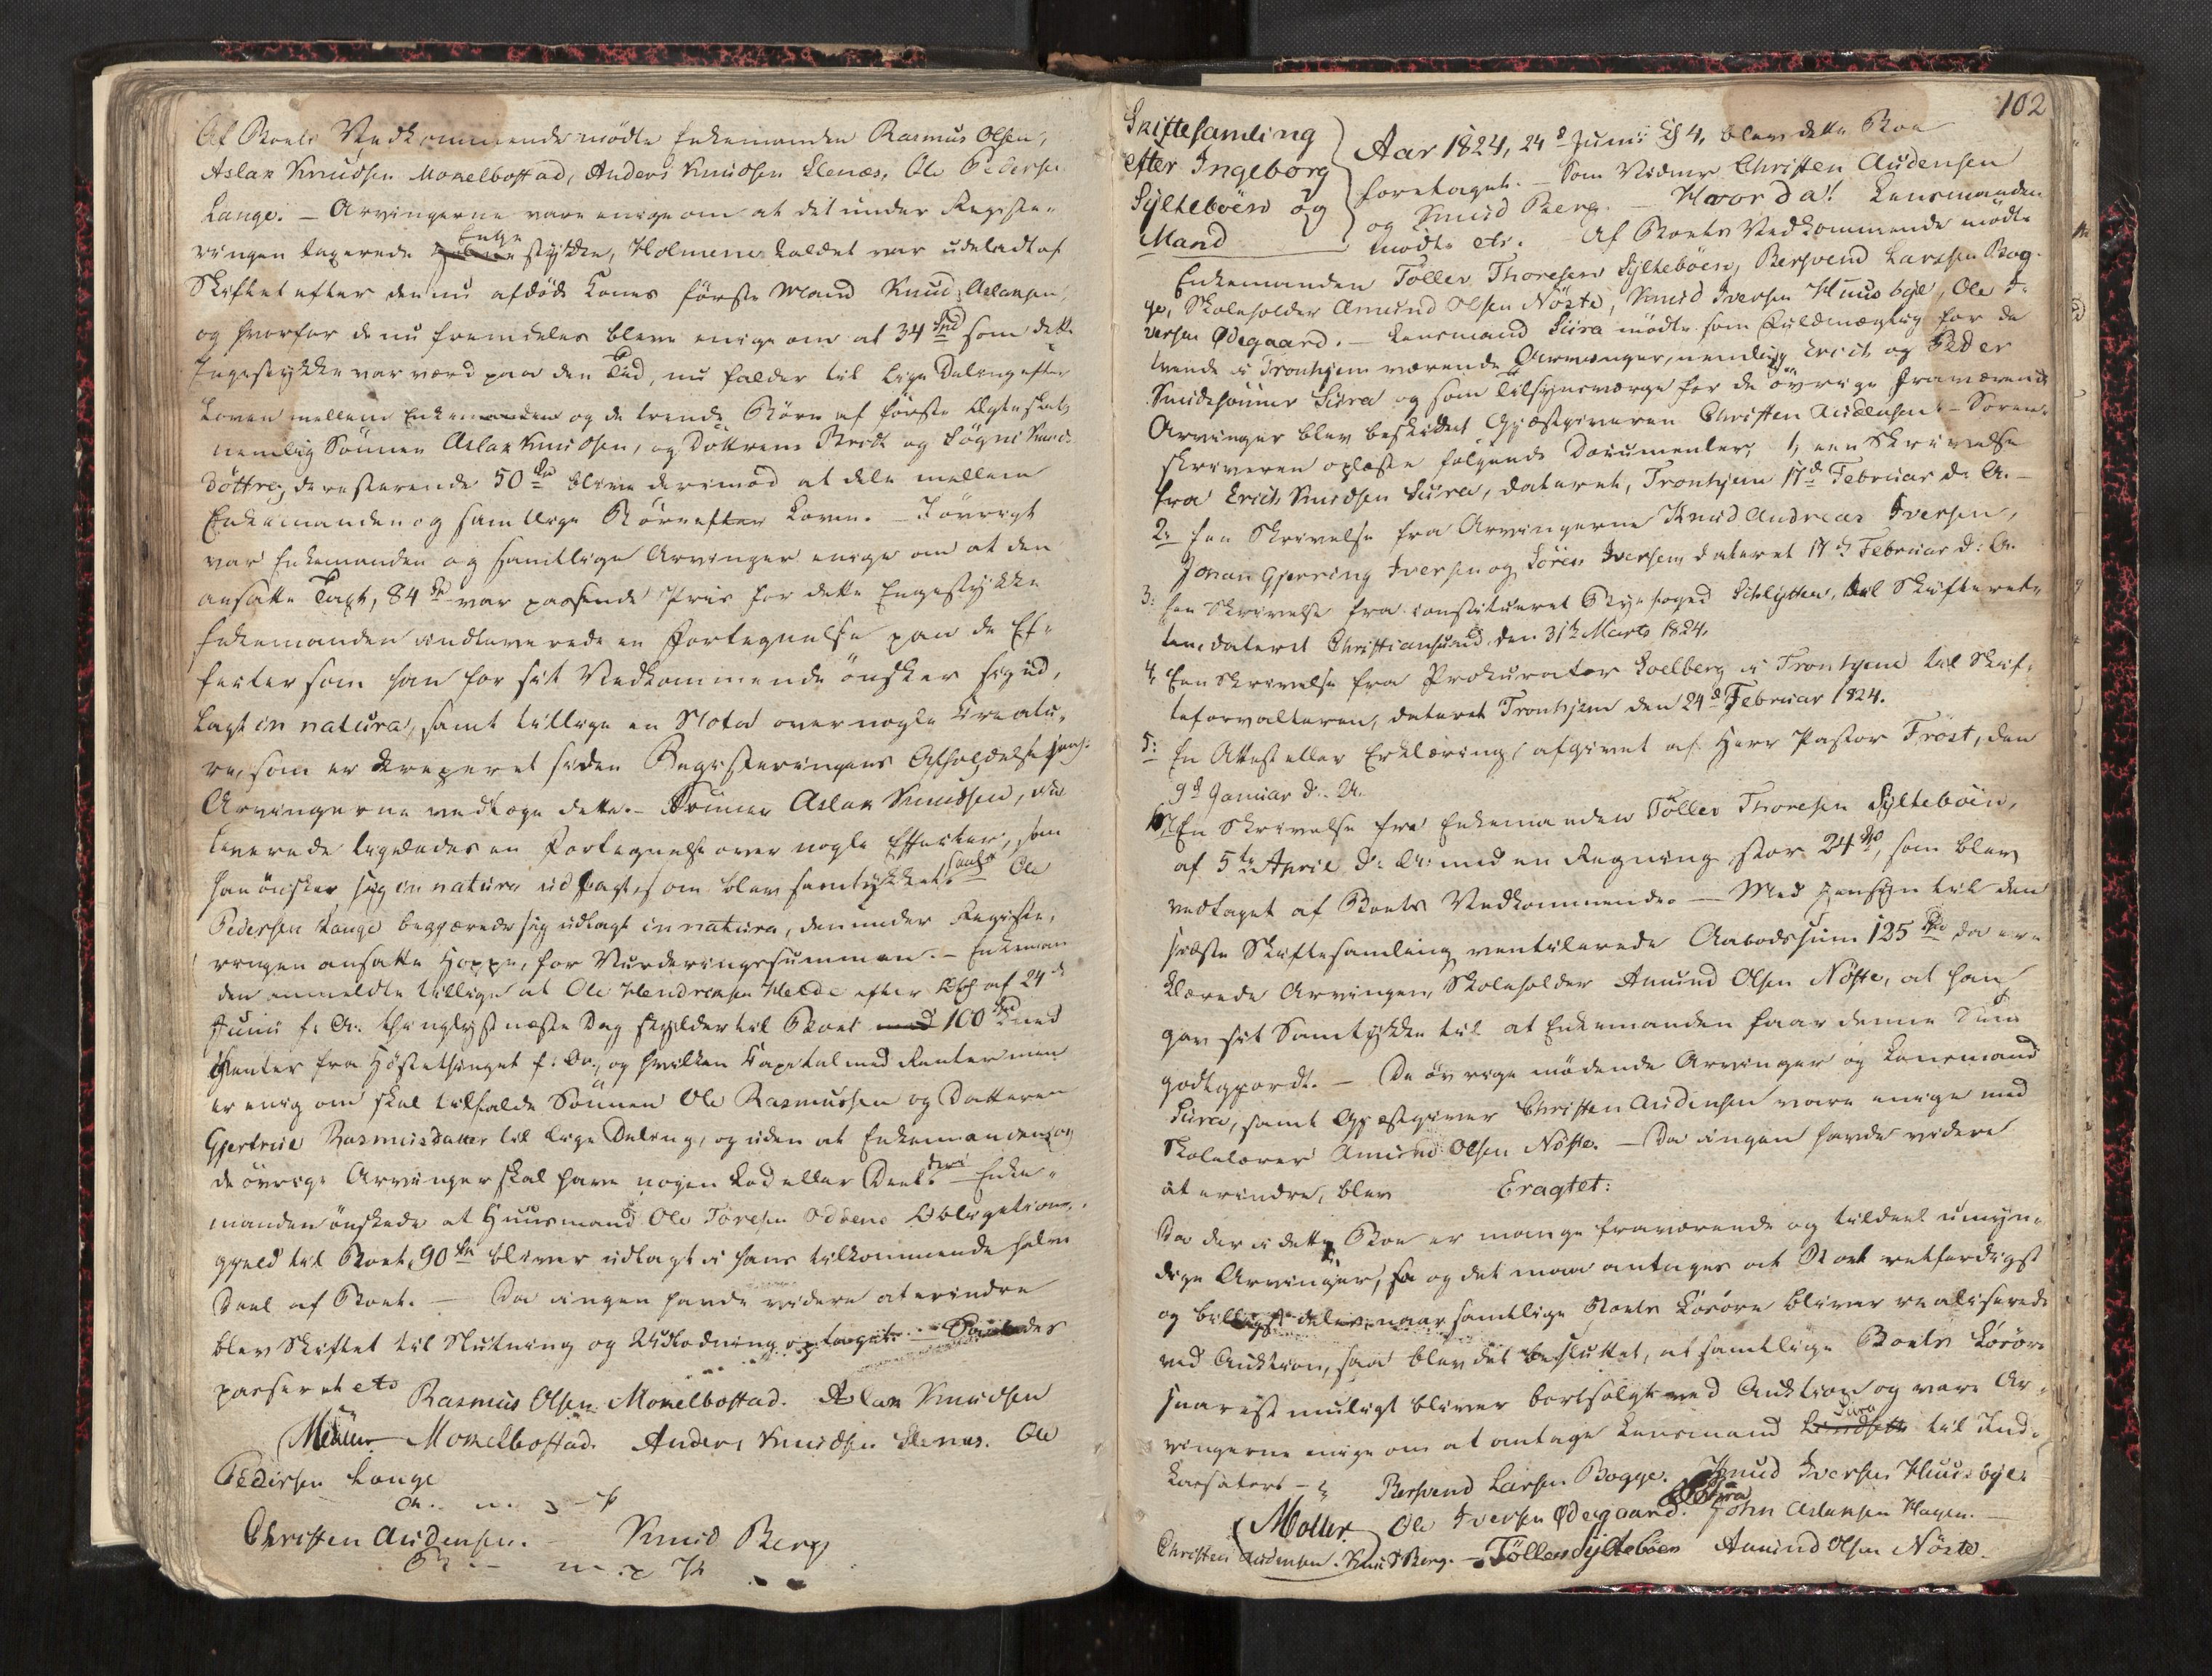 Af Boets Vedkommende mødte Enkemanden Rasmus Olsen,
Aslak Knudsen Monelbostad, Anders Knudsen Elenæs, Ole Pedersen
Lange. – Arvingerne vare enige om at det under Registe-
ringen taxerede Enge stykke, Holmene kaldet var udeladt af
Skiftet efter den nu afdøde Kones første Mand Knud Aslaksen,
og hvorfor de nu fremdeles bleve enige om at 34 Spd som dette
Engestykke var værd paa den Tid, nu falder til lige Deling efter
Loven mellem Enkemanden og de trende Børn af første Ægteskab,
nemlig Sønnen Aslak Knudsen, og Døttrene Beret og Søgni Knuds-
døttre, de resterende 50 Spd blive derimod at dele mellem
Enkemanden og samtlige Børn efter Loven. – Iøvrigt
var Enkemanden og samtlige Arvinger enige om at den
ansatte Taxt, 84 Spd var passende Priis for dette Engestykke
Enkemanden indleverede en Fortegnelse paa de Ef-
fecter som han for sit Vedkommende ønsker sig ud-
lagt in natura, samt tillige en Nota over nogle Creatu-
re, som er kreperet siden Registeringens Afholdelse
Arvingerne vedtoge dette. – Sønnen Aslak Knudsen, ind
leverede ligeledes en Fortegnelse over nogle Effecter, som
han ønsker sig in natura udlagt, som blev samtykket. Ole
Pedersen Lange begjærede sig udlagt in natura, den under Registe-
ringen ansatte Hoppe, for Vurderingssummen. – Enkeman
den anmeldte tillige at Ole Hendriksen Melde efter Obl: af 24 d
Junii f. A. thinglyst næste Dag skylder til Boet 100 Spd med
Renter fra Høstethinget f. A., og hvilken Capital med Renter man
er enig om skal tilfalde Sønnen Ole Rasmussen og Datteren
Gjertrue Rasmusdatter til lige Deling, og uden at Enkemanden og
de øvrige Arvinger skal have nogen Lod eller Deel deri. – Enke-
manden ønskede at Huusmand Ole Toresen Ødvens Obligations-
gjeld til Boet, 90 Spd bliver udlagt i hans tilkommende halve
Deel af Boet. – Da ingen havde videre at erindre
blev Skiftet til Slutning og Udlodning optaget. – Saaledes
passeret etc Rasmus Olsen Monelbostad. Aslak Knudsen
Møller Monelbostad. Anders Knudsen Elenæs. Ole
Pedersen Lange
m. p. P.
Christen Audensen. – Knud Berg
102
Skiftesamling
efter Ingeborg
Syltebøen og
Mand
Aar 1824, 24 d Junii Kl 4, blev dette Boe
foretaget. – Som Vidner Christen Audensen
og Knud Berg. – Hvor da! Lensmanden
mødte etc. Af Boets Vedkommende mødte
Enkemanden Tøller Thoresen Syltebøen, Bersvend Larssen Bog-
ge, Skoleholder Amund Olsen Nøste, Knud Iversen Huusbye, Ole I-
versen Ødegaard. – Lensmand Sura mødte som Fuldmægtig for de
tvende i Tronhjem værende Arvinger, nemlig Erich og Peder
Knudsønner Sura og som Tilsynsværge for de øvrige fraværende
Arvinger blev beskikket Gjæstgiveren Christen Audensen. – Soren-
skriveren oplæste følgende Documenter, 1, een Skrivelse
fra Erich Knudsen Sura, dateret, Tronhjem 17 d Februar d. A. –
2. Een Skrivelse fra Arvingerne Knud Andreas Iversen,
Johan Gjørring Iversen og Søren Iversen, dateret 17 d Februar d: A.
3: Een Skrivelse fra constitueret Byefoged Schlytter, til Skifteret-
ten, dateret Christiansund den 31te Marts 1824.
4, Een Skrivelse fra Prokurator Soelberg i Tronhjem til Skif-
teforvalteren, dateret Tronhjem den 24 d Februar 1824.
5: En Attest eller Erklæring, afgivet af Herr Pastor Frost, den
9 d Januar d. A.
En Skrivelse fra Enkemanden Tøller Thoresen Syltebøen,
af 5te April d: A: med en Regning stor 24 Spd, som blev
vedtaget af Boets Vedkommende. – Med Hensyn til den
sidste Skiftesamling ventilerede Aabodssum 125 Spd da er-
klærede Arvingen, Skoleholder Amund Olsen Nøste, at han
gav sit Samtykke til at Enkemanden faar denne Sum
godtgjordt. – De øvrige mødende Arvinger og Lensmand
Sura, samt Gjæstgiver Christen Audensen vare enige med
Skolelærer Amund Olsen Nøste. – Da ingen havde videre
at erindre, blev Eragtet:
Da der i dette Boe er mange fraværende og tildeel umyn-
dige Arvinger, og det maa antages at Boet retfærdigst
og billigst deles, naar samtlige Boets Løsøre bliver realiserede
ved Auktion, saa blev det besluttet, at samtlige Boets Løsøre
snarest muligt bliver bortsolgt ved Auktion og vare Ar-
vingerne enige om at antage Lensmand Sura til Ind-
kassator – Bersvend Larsen Bogge. Knud Iversen Huusbye.
Møller. Ole Iversen Ødegaard. Sura John Aslaksen Hagen.
Christen Audensen. Knud Berg. – Tøller Syltebøen Amund Olsen Nøste.